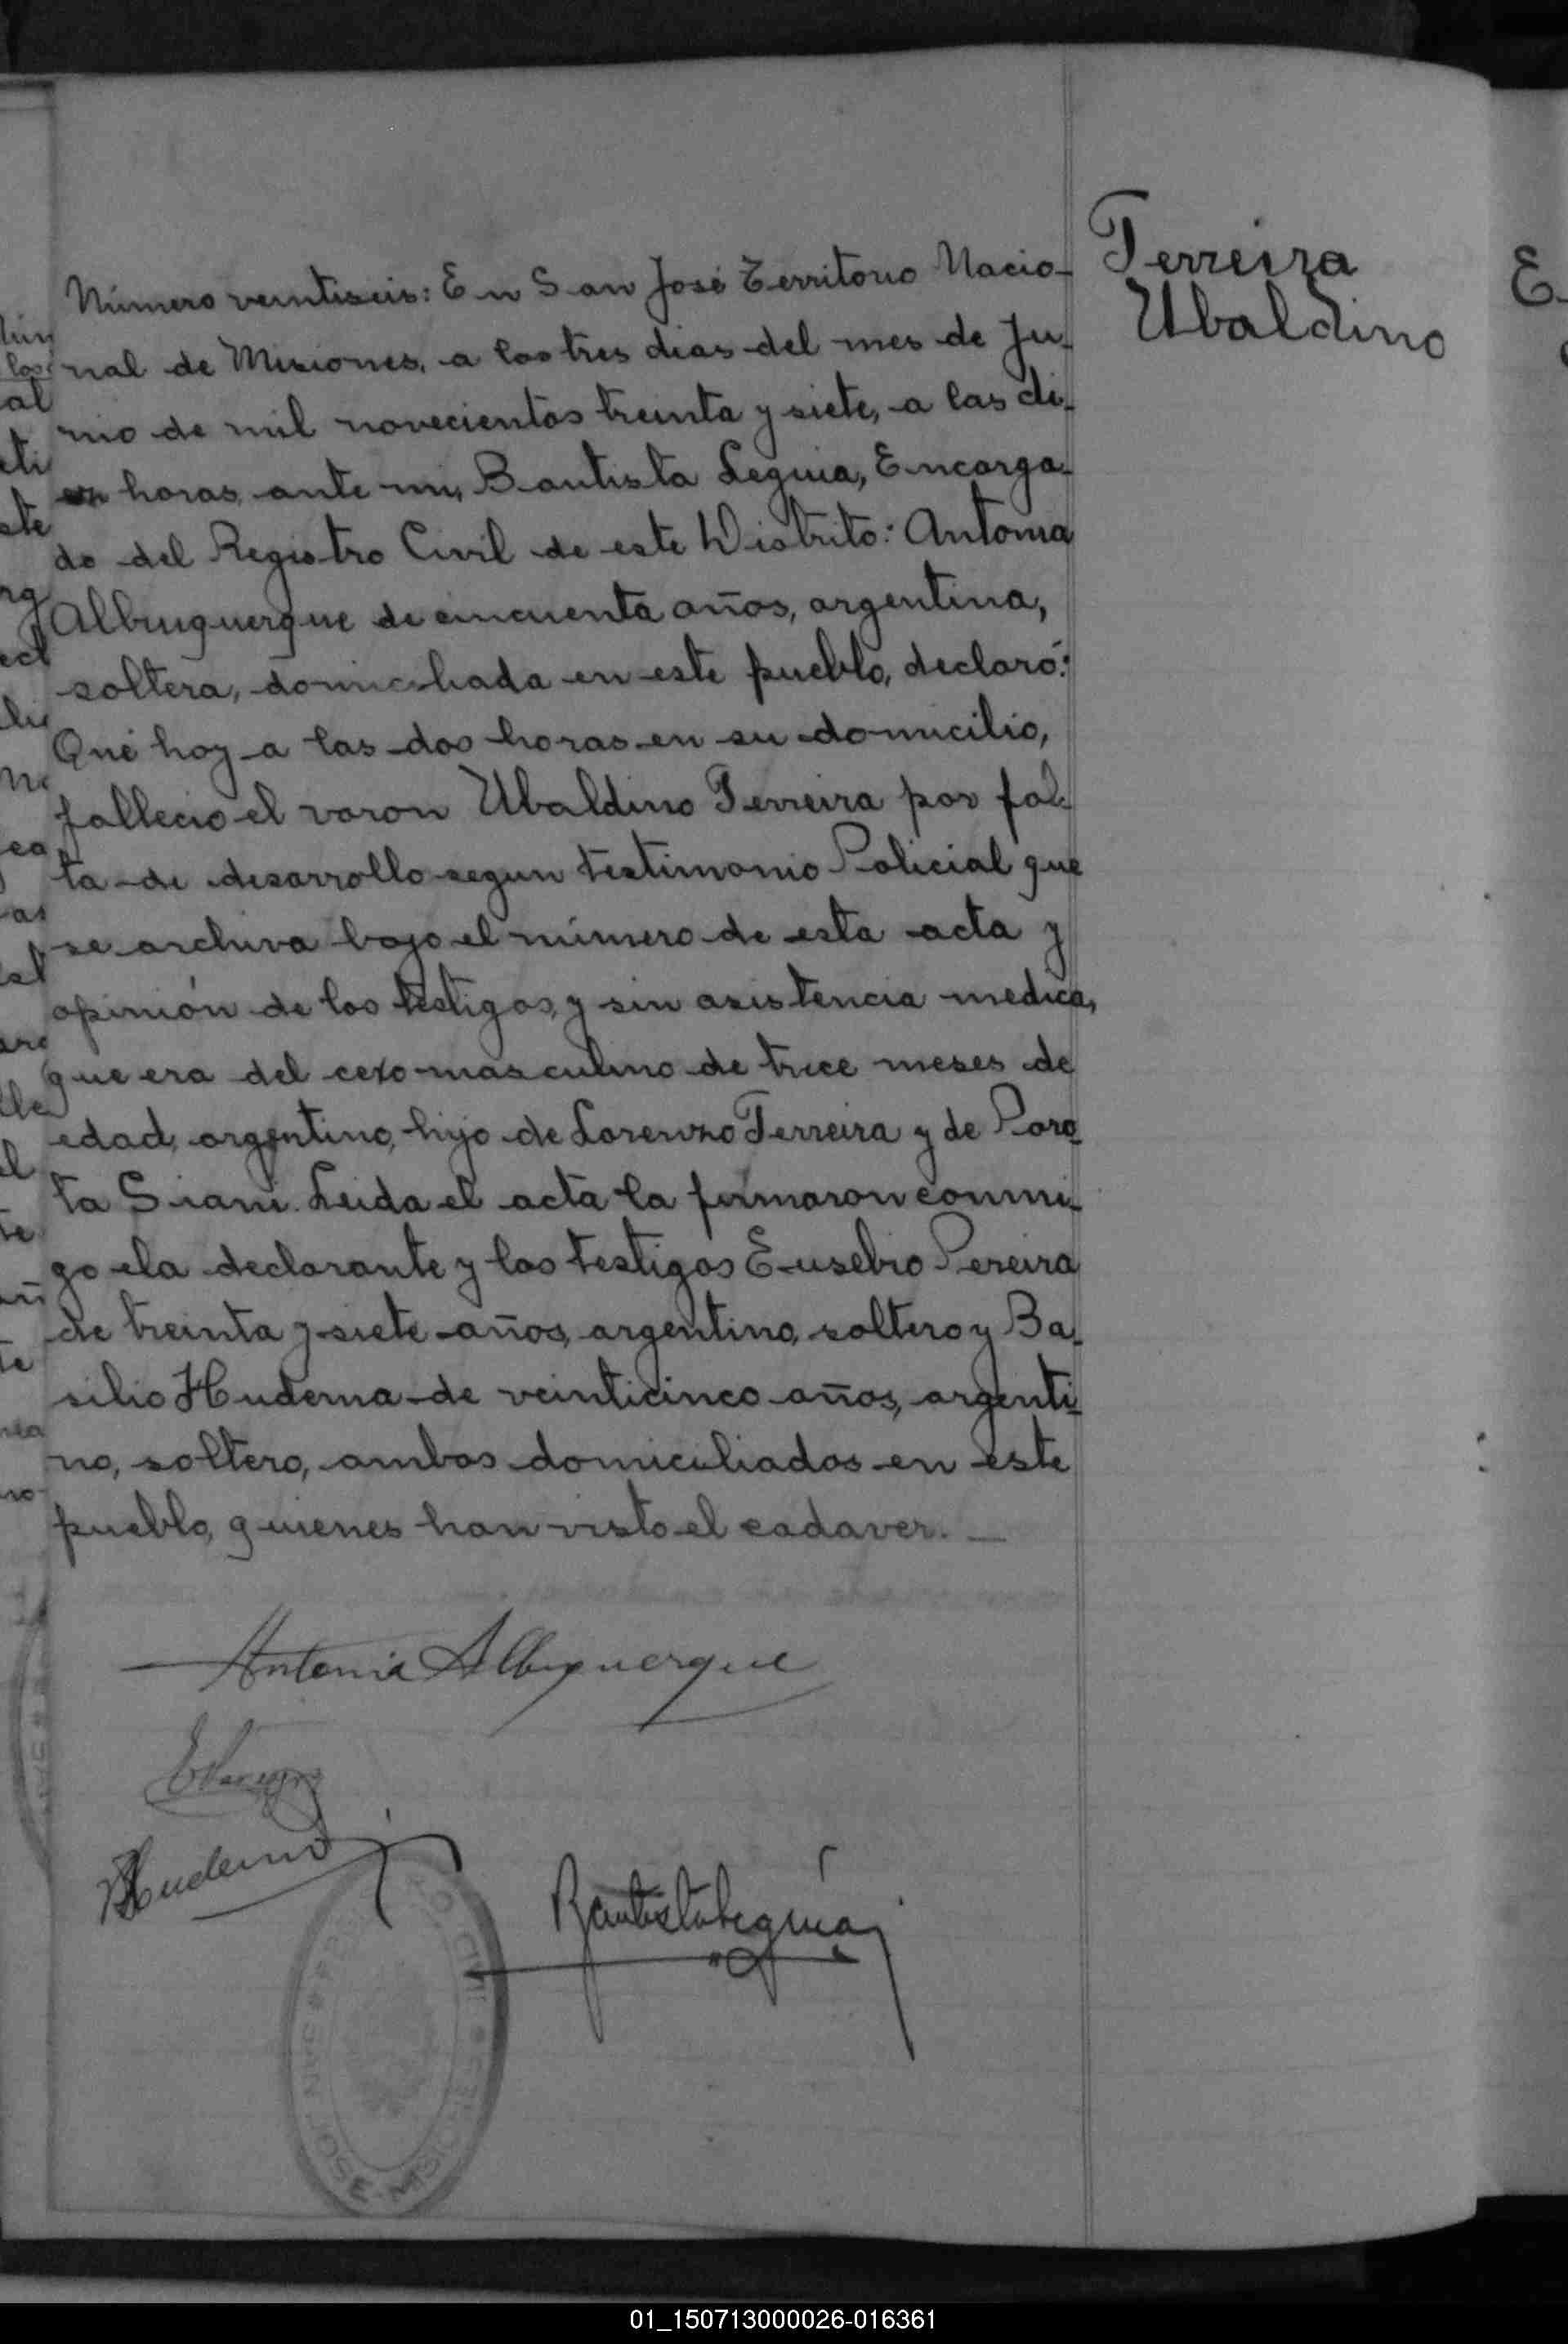 Ferreira
Ubaldino
Número veintiseis: En San José Territorio Nacio-
nal de Misiones, a los tres dias del mes de Ju-
nio de mil novecientos treinta y siete, a las di-
ez horas, ante mi, Bautista Leguia, Encarga-
do del Registro Civil de este Distrito: Antonia
Albuquerque de cincuenta años, argentina,
soltera, domiciliada en este pueblo, declaró:
Qué hoy a las dos horas en su domicilio,
fallecio el varon Ubaldino Ferreira por fal-
ta de desarrollo segun testimonio Policial que
se archiva bajo el número de esta acta y
opinión de los testigos, y sin asistencia medica,
que era del cexo masculino de trece meses de
edad, argentino, hijo de Lorenzo Ferreira y de
ta Leida el acta la firmaron conmi-
go ela declarante y los testigos Eusebio Pereira
de treinta y siete años, argentino, soltero y Ba-
silio Huderna de veinticinco años, argenti-
no, soltero, ambos domiciliados en este
pueblo, quienes han visto el cadaver. —
Antonia Albuquerque
BHuderna
Bautista Leguía
SAN JOSE - MISIONES
01_150713000026-016361